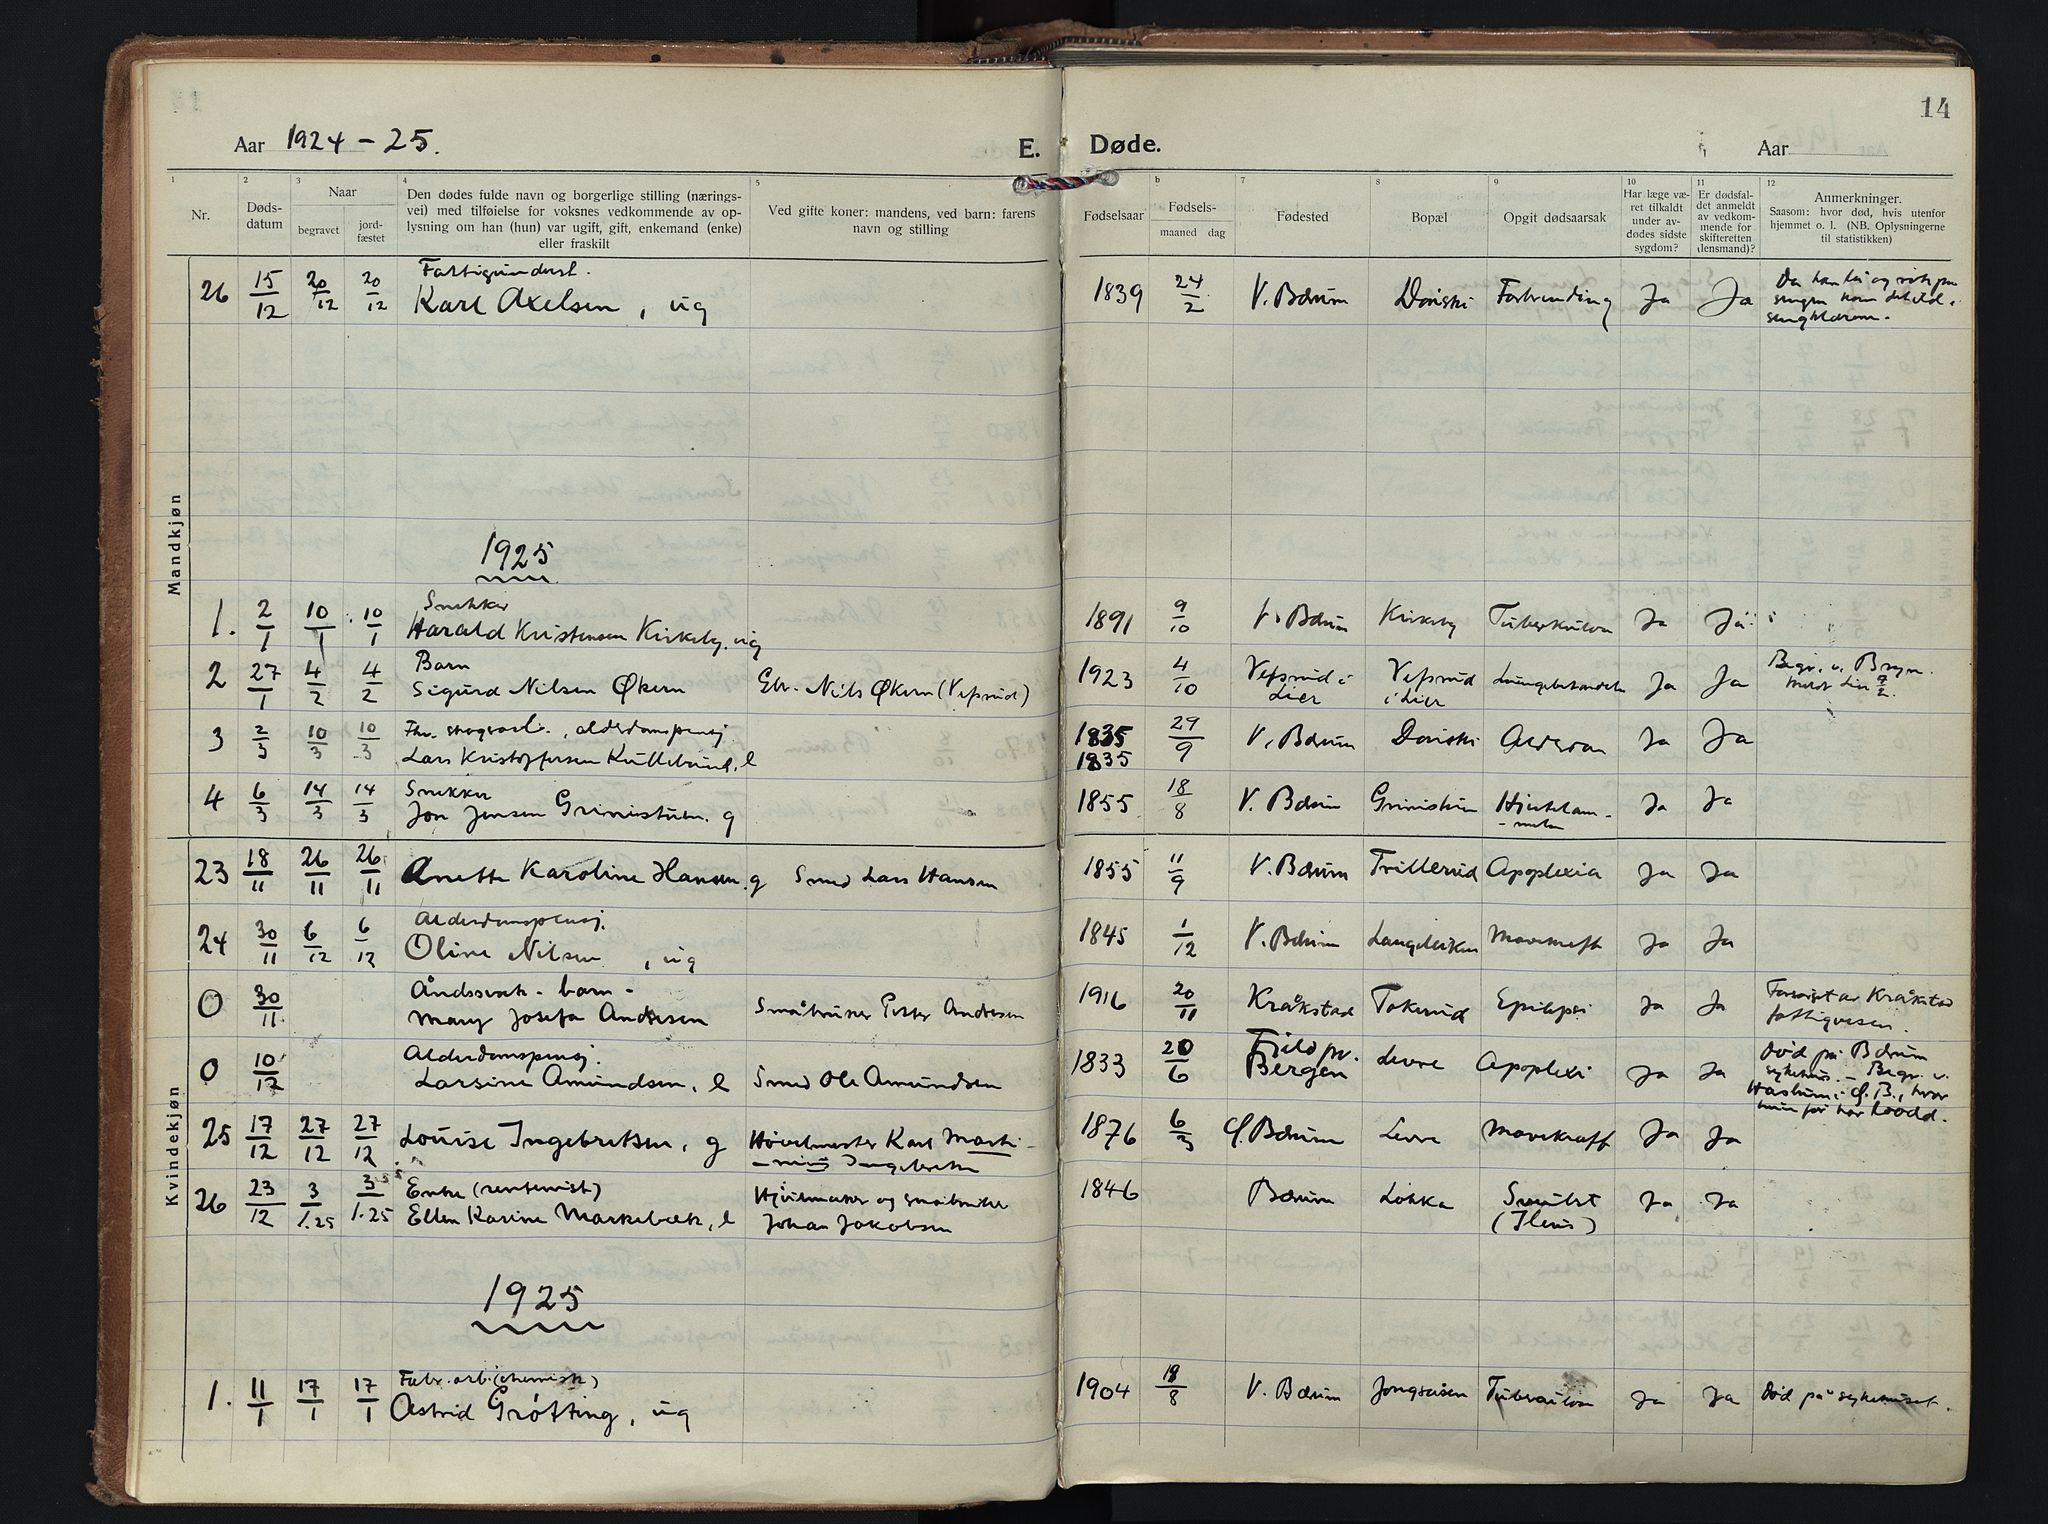 14
Aar 1924-25.
E. Døde.
Aar
1 2 3 4 5 6 7 8 9 10 11 12
Nr.
Døds-
datum
Naar
begravet
jord-
fæstet
Den dødes fulde navn og borgerlige stilling (nærings-
vei) med tilføielse for voksnes vedkommende av op-
lysning om han (hun) var ugift, gift, enkemand (enke)
eller fraskilt
Ved gifte koner: mandens, ved barn: farens
navn og stilling
Fødselsaar
Fødsels-
maaned dag
Fødested
Bopæl
Opgit dødsaarsak
Har læge væ-
ret tilkaldt
under av-
dødes sidste
sygdom?
Er dødsfal-
det anmeldt
av vedkom-
mende for
skifteretten
(lensmand)?
Anmerkninger.
Saasom: hvor død, hvis utenfor
hjemmet o. l. (NB. Oplysningerne
til statistikken)
Mandkjøn
Fattigunderst.
26 15/12 20/12 20/12 Karl Axelsen, ug 1839 24/2 V. Bærum Dønski Forbrænding Ja Ja
1925
Snekker
1. 2/1 10/1 10/1 Harald Kristensen Kirkeby. ug 1891 9/10 V. Bærum Kirkeby Tuberkulose Ja Ja
Barn
2 27/1 4/2 4/2 Sigurd Nilsen Økern Gbr. Nils Økern (Vefsrud) 1923 4/10 Vefsrud i Lier Vefsrud i Lier Lungebetændelse Ja Ja Begr. v. Bryn.
Meldt Lier
Fhv. skogsarb., alderdomspensj.
3 2/3 10/3 10/3 Lars Kristoffersen Kullebund, e 1835 29/9 V. Bærum Dønski Alderdom Ja Ja
1835
Snekker
4 6/3 14/3 14/3 Jon Jensen Grinistuen. g 1855 18/8 V. Bærum Grinistuen Hjertelam-
melse Ja Ja
Kvindekjøn
23 18/11 26/11 26/11 Anette Karoline Hansen. g Smed Lars Hansen 1855 11/9 V. Bærum Trillerud Apoplexia Ja Ja
Alderdomspensj.
24 30/11 6/12 6/12 Oline Nilsen, ug 1845 1/12 V. Bærum Langeløkken Mavekræft Ja Ja
Åndssvak - barn -
0 30/11 Mary Josefa Andresen Småbruker Petter Andresen 1916 20/11 Kråkstad Tokerud Epilepsi Ja Ja Forsørget av Kråkstad
fattigvesen.
Alderdomspensj.
0 10/12 Larsine Amundsen, e Smed Ole Amundsen 1833 20/6 Field pr.
Bergen Levre Apoplexi Ja Ja Død på Bærum
sykehus. - Begr. v.
Haslum i Ø. B., hvor
hun før har bodd.
25 17/12 27/12 27/12 Louise Ingebretsen, g Høvelmester Karl Marti-
nius Ingebretsen 1876 6/3 Ø. Bærum Levre Mavekræft Ja Ja
Enke (rentenist)
26 23/12 3/1.25 3/1.25 Ellen Karine Markebæk, e Hjulmaker og småbruker
Johan Jakobsen 1846 Bærum Løkka Smultst
(Ileus) Ja Ja
1925
Fabr. arb. (chemisk)
1. 11/1 17/1 17/1 Astrid Grøtting, ug 1904 18/8 V. Bærum Jongsåsen Tuberkulose Ja Ja Død på sykehuset.